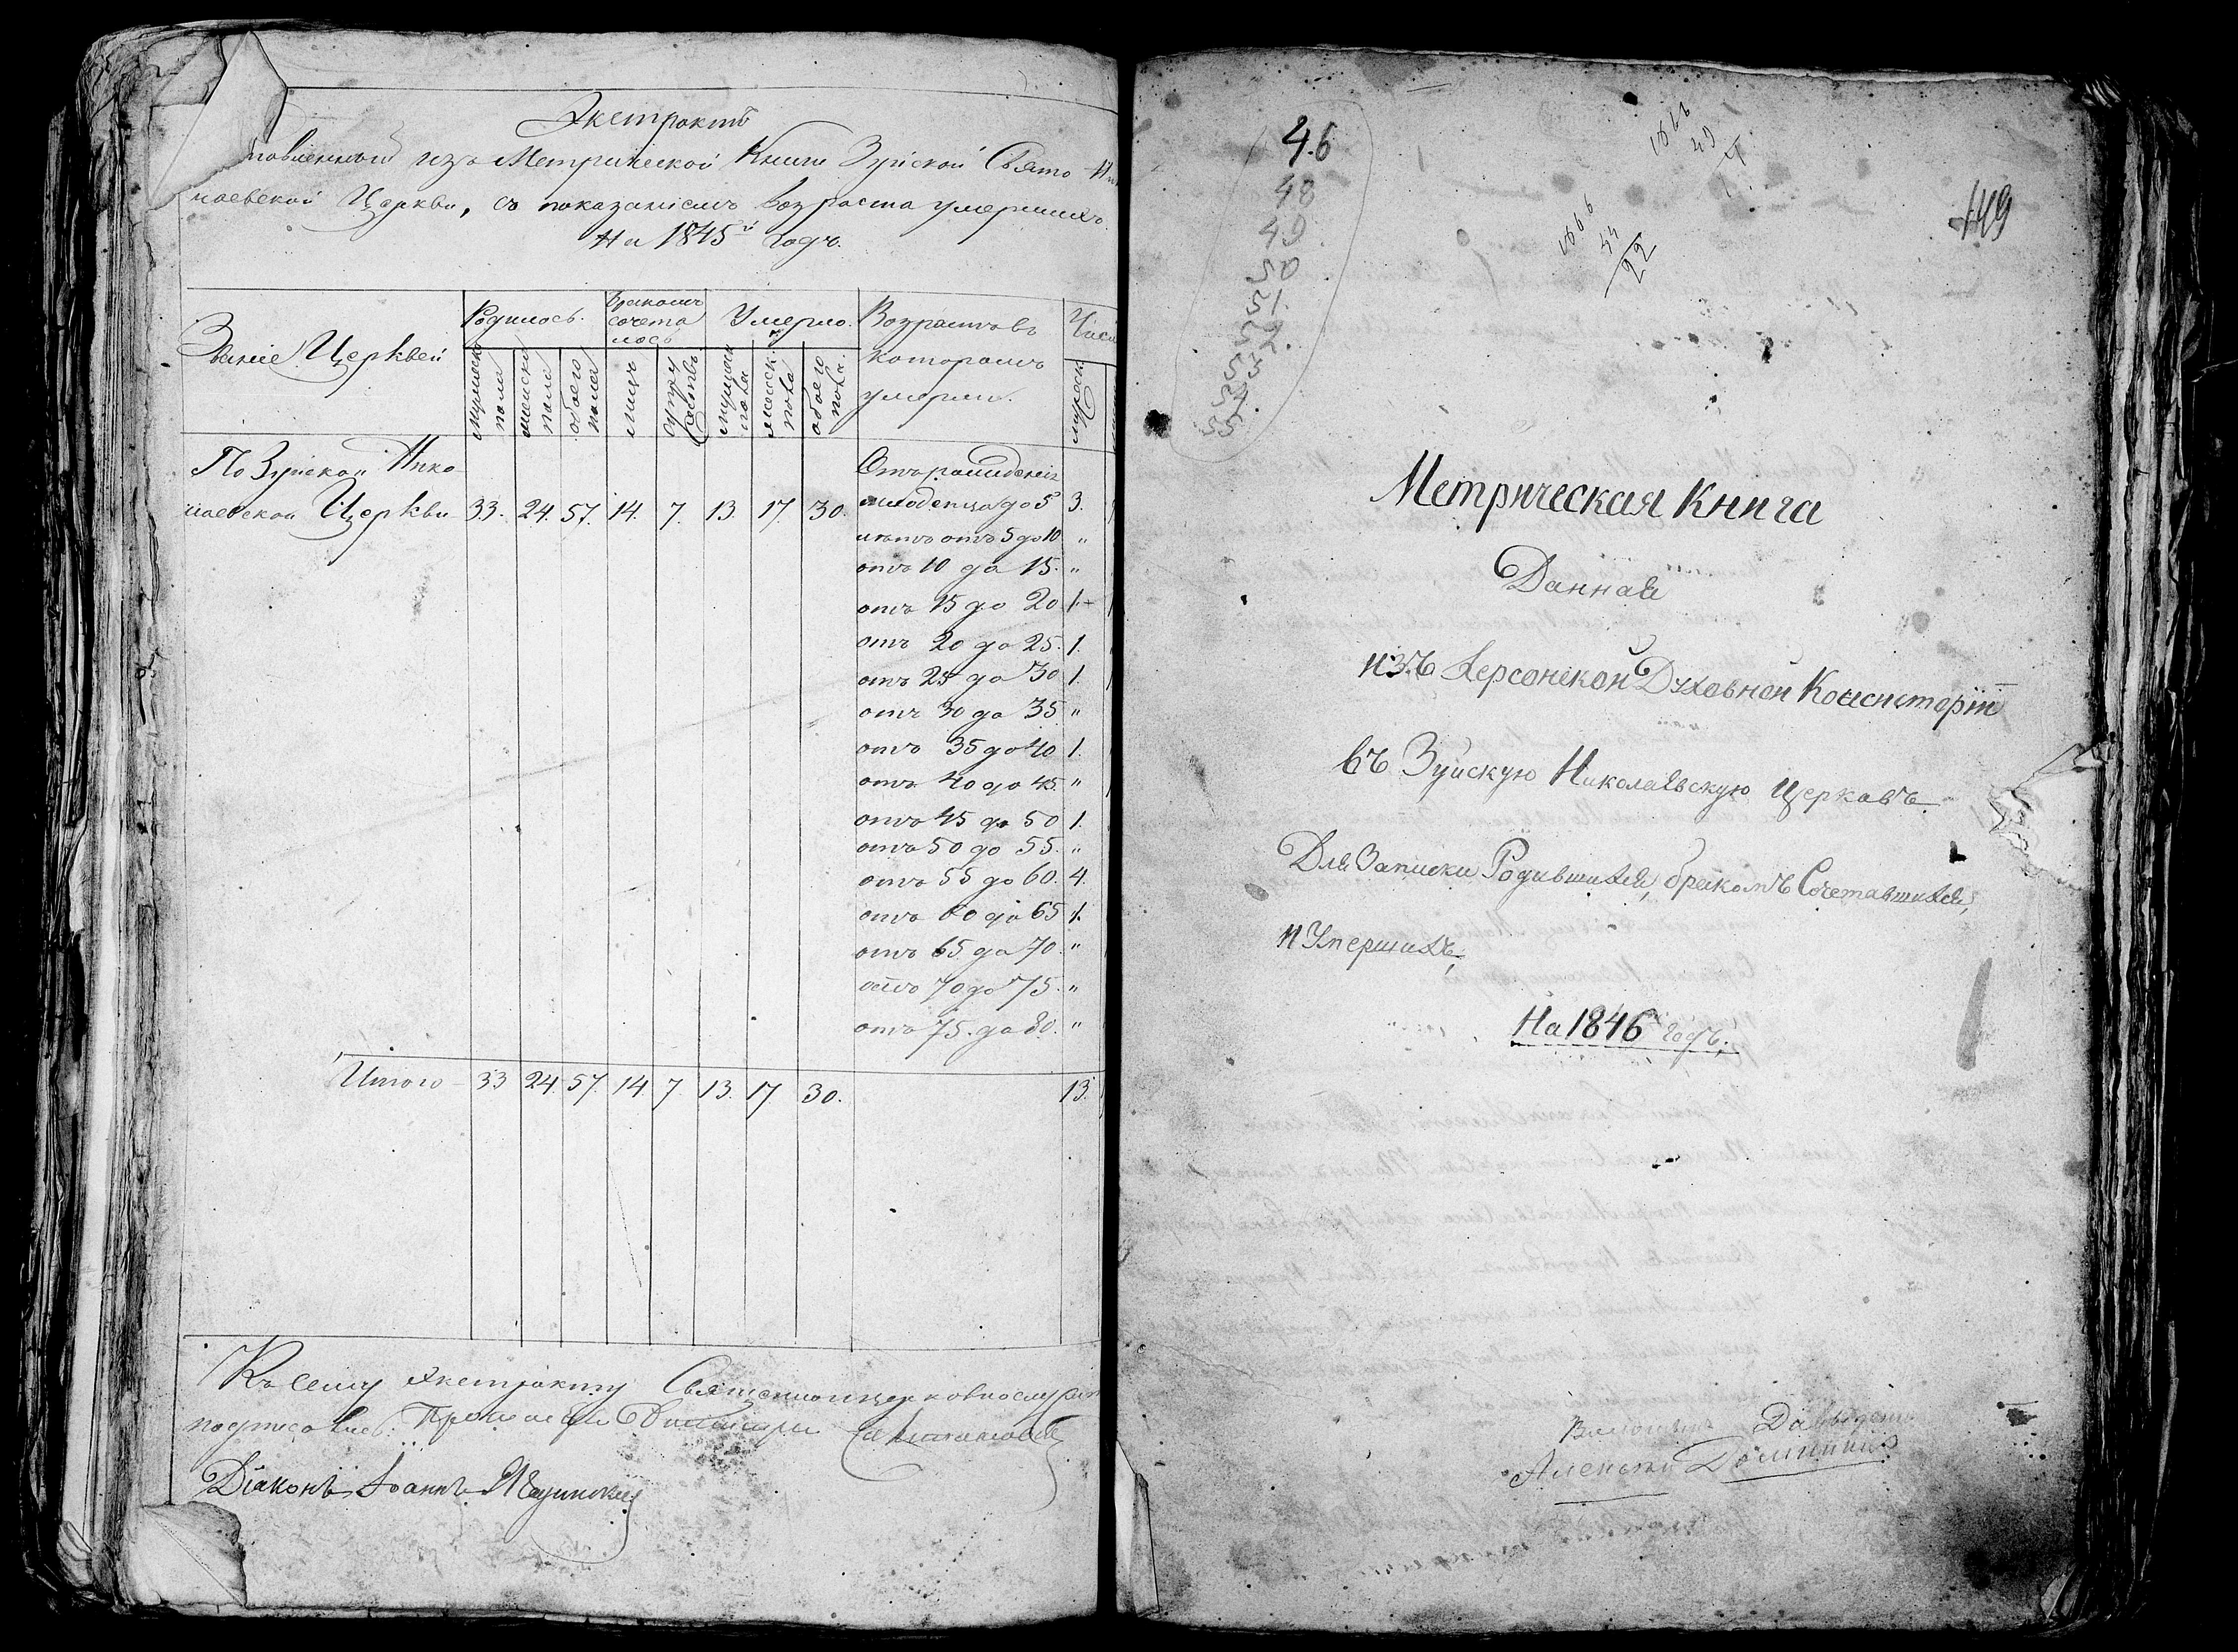 Экстрактъ
изъ Метрической Книги Зуйской Свято Ни
лаевской Церкви, съ показаніемъ возраста умершихъ.
На 1845й годъ.
Званіе Церквей
Родилось.
мужеска пола
женска пола
обоего пола
бракомъ сочета лось
лицъ
супру жествъ
Умерло.
мужеска пола
женск. пола
обоего пола.
Возрастъ въ
которомъ
умерли.
Число
мужеск
По Зуйской Нико
лаевской Церкви 33. 24. 57. 14. 7. 13. 17. 30.
Отъ рожденія
младенца до 5 3.
лѣтъ отъ 5 до 10 "
отъ 10 до 15. "
отъ 15 до 20 1.
отъ 20 до 25. 1.
отъ 25 до 30 1.
отъ 30 до 35 "
отъ 35 до 40 1.
отъ 40 до 45. "
отъ 45 до 50 1.
отъ 50 до 55. "
отъ 55 до 60. 4.
отъ 60 до 65 1.
отъ 65 до 70. "
отъ 70 до 75. "
отъ 75. до 80. "
Итого 33 24 57. 14 7. 13. 17 30. 13.
Къ сему экстракту Священноцерковнослужит
подписались:
Діаконъ Іоаннъ
46
48
49.
50
51.
52.
53
54.
55
1866
49
1866
44
22
149
Метрическая Книга
Данная
изъ Херсонской Духовной Консисторіи
въ Зуйскую Николаевскую Церковь
Для Записки Родившихся, бракомъ Сочетавшихся,
и Умершихъ,
На 1846й годъ.